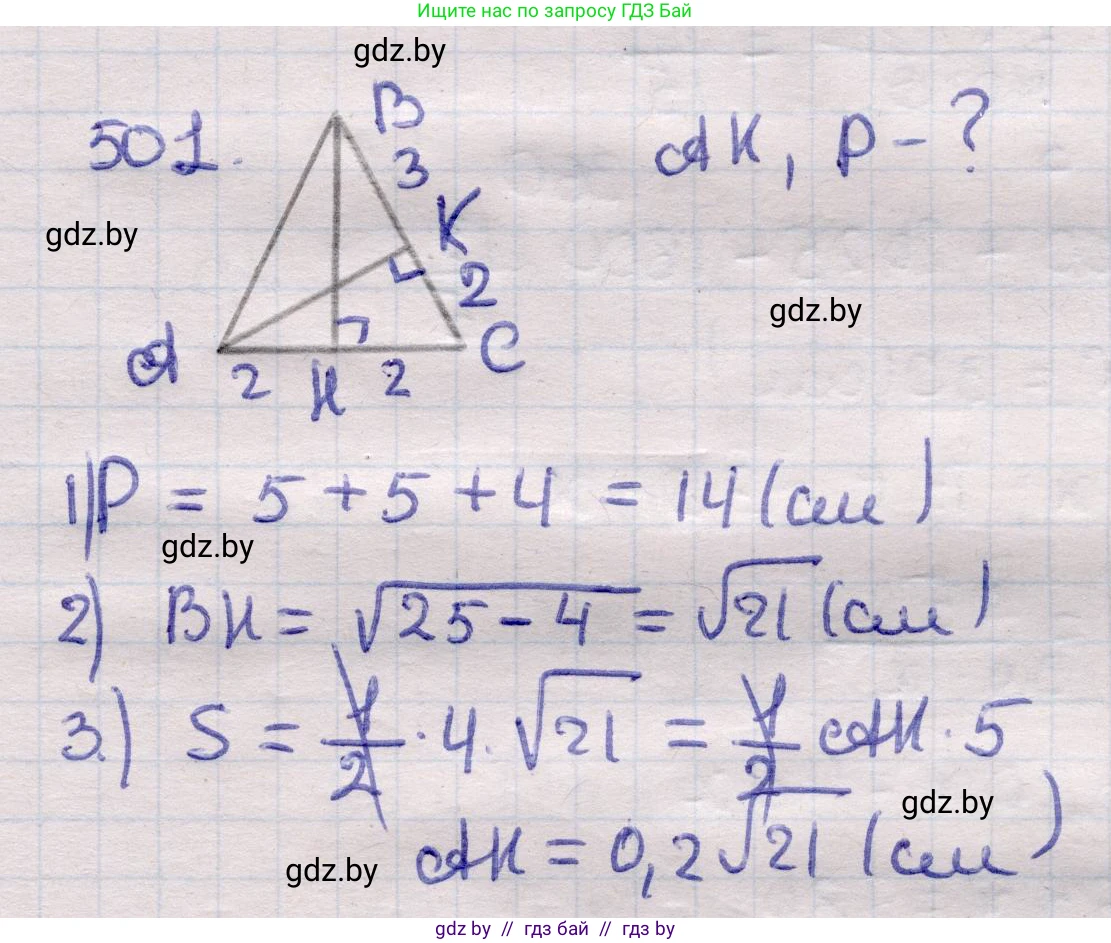 Ищите нас по запросу ГДЗ Бай
gdz.by
501.
B
3
K
2
C
A
2
H
2
AK, P - ?
gdz.by
gdz.by
1) P = 5 + 5 + 4 = 14 (см)
gdz.by
2) BH = √25 - 4 = √21 (см)
3.) S = 1/2 · 4 · √21 = 1/2 AK · 5
gdz.by
AK = 0,2√21 (см)
gdz.by
gdz.by // гдз бай // гдз by